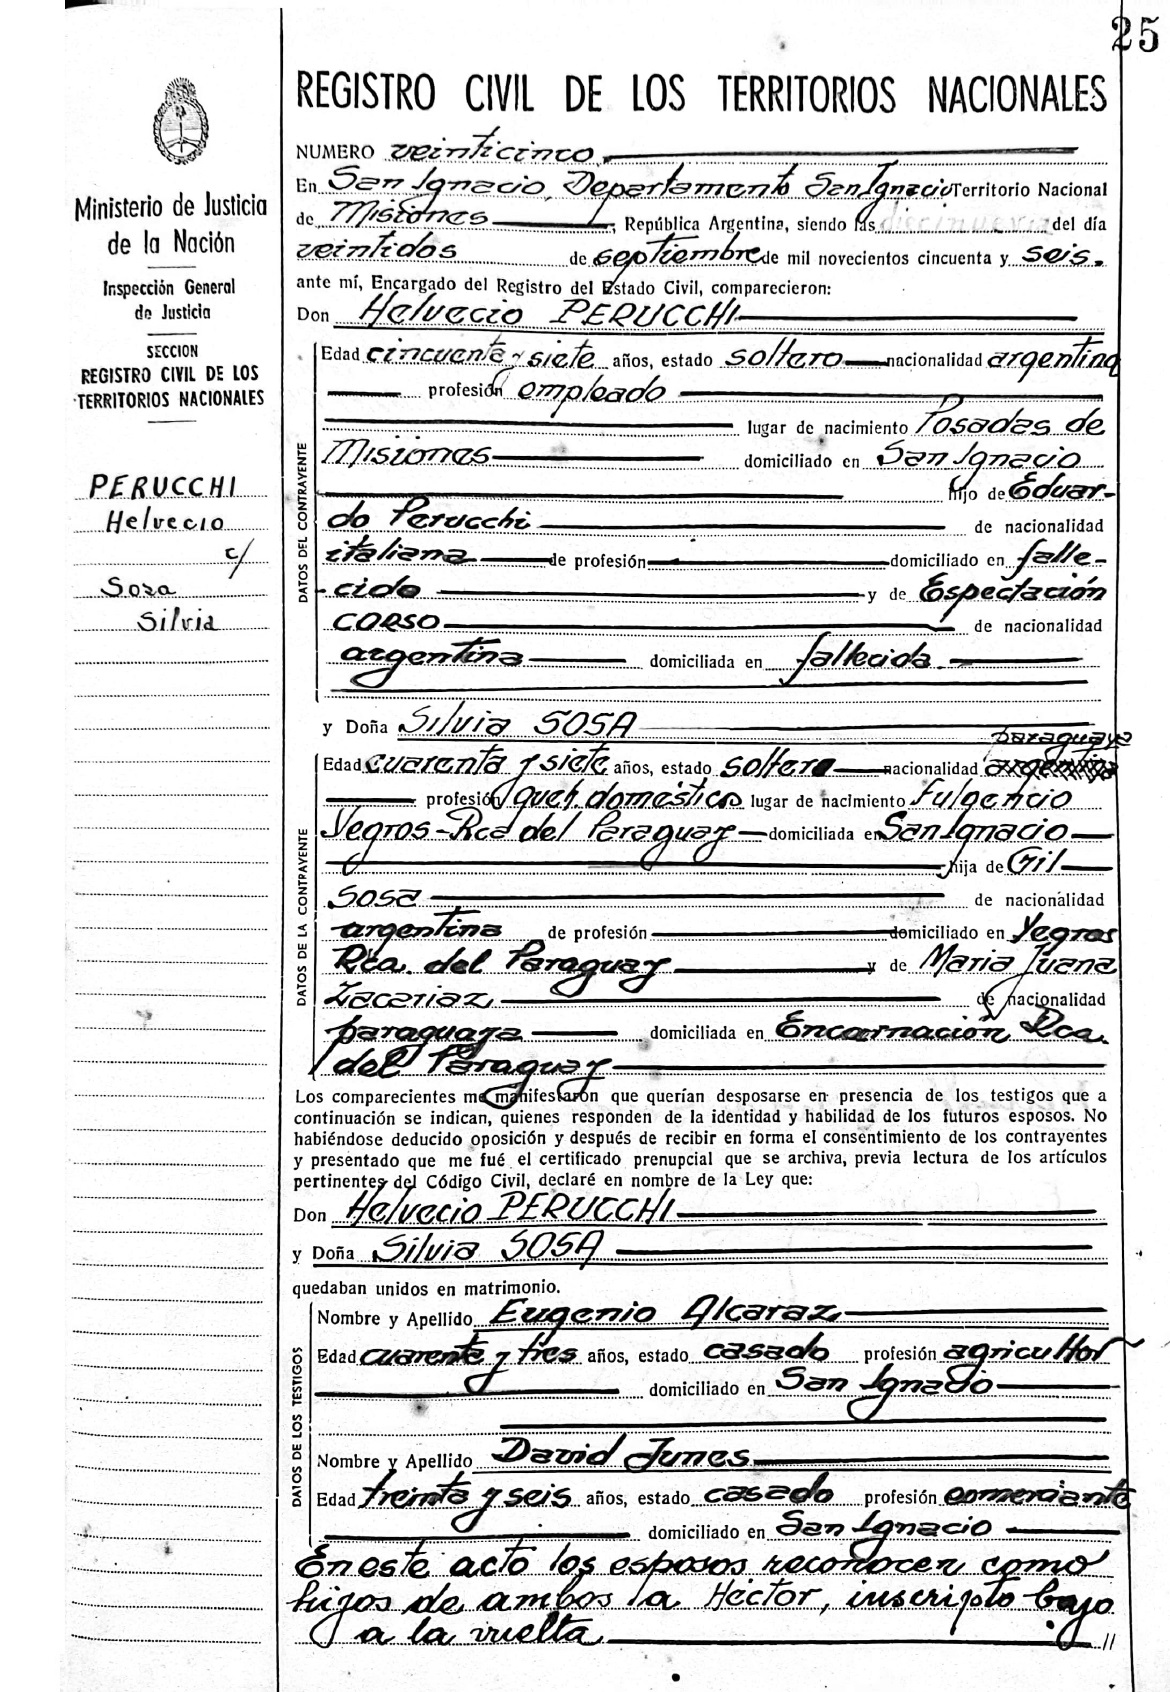 25
REGISTRO CIVIL DE LOS TERRITORIOS NACIONALES
Ministerio de Justicia
de la Nación
Inspección General
de Justicia
SECCION
REGISTRO CIVIL DE LOS
TERRITORIOS NACIONALES
PERUCCHI
Helvecio
c/
Sosa
Silvia
NUMERO veinticinco
En San Ignacio, Departamento San Ignacio Territorio Nacional
de Misiones, República Argentina, siendo las del día
veintidos de septiembre de mil novecientos cincuenta y seis.
ante mí, Encargado del Registro del Estado Civil, comparecieron:
Don Helvecio PERUCCHI
DATOS DEL CONTRAYENTE
Edad cincuenta y siete años, estado soltero nacionalidad argentina
profesión empleado
lugar de nacimiento Posadas de
Misiones domiciliado en San Ignacio
hijo de Eduar-
do Perucchi de nacionalidad
italiana de profesión domiciliado en falle-
cido y de Espectación
CORSO de nacionalidad
argentina domiciliada en fallecida.
y Doña Silvia SOSA
DATOS DE LA CONTRAYENTE
paraguaya
Edad cuarenta y siete años, estado soltera nacionalidad argentina
profesión queh. domésticos lugar de nacimiento Fulgencio
Yegros-Rca del Paraguay domiciliada en San Ignacio
hija de Gil
Sosa de nacionalidad
argentina de profesión domiciliado en Yegros
Rca. del Paraguay y de Maria Juana
Zacariaz de nacionalidad
paraguaya domiciliada en Encarnación Rca.
del Paraguay
Los comparecientes me manifestaron que querían desposarse en presencia de los testigos que a
continuación se indican, quienes responden de la identidad y habilidad de los futuros esposos. No
habiéndose deducido oposición y después de recibir en forma el consentimiento de los contrayentes
y presentado que me fué el certificado prenupcial que se archiva, previa lectura de los artículos
pertinentes del Código Civil, declaré en nombre de la Ley que:
Don Helvecio PERUCCHI
y Doña Silvia SOSA
quedaban unidos en matrimonio.
DATOS DE LOS TESTIGOS
Nombre y Apellido Eugenio Alcaraz
Edad cuarenta y tres años, estado casado profesión agricultor
domiciliado en San Ignacio
Nombre y Apellido David Junes
Edad treinta y seis años, estado casado profesión comerciante
domiciliado en San Ignacio
En este acto los esposos reconocen como
hijos de ambos a Héctor, inscripto bajo
a la vuelta //